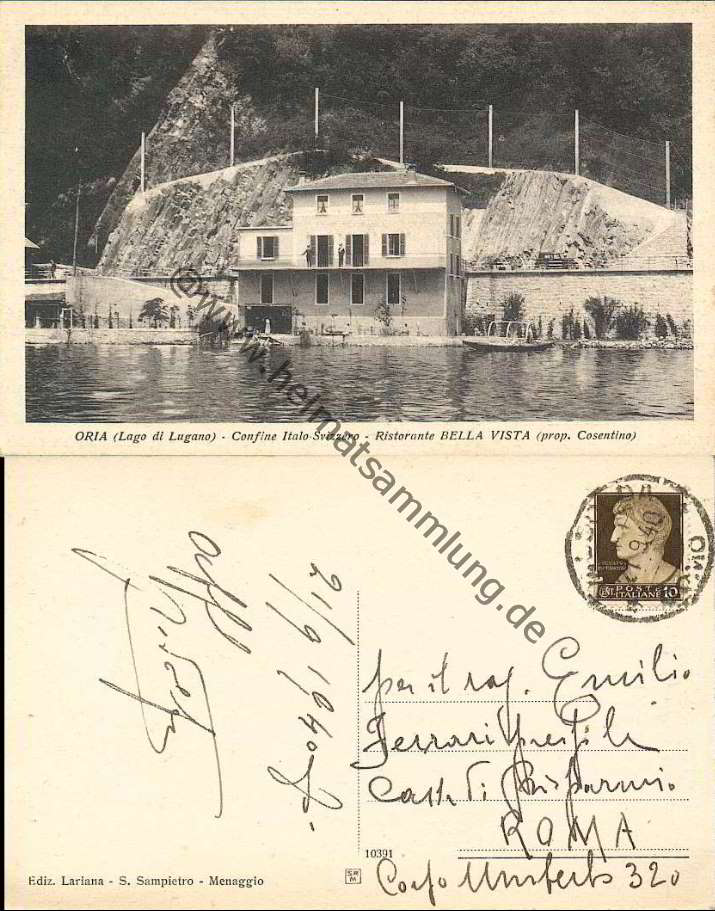 ORIA (Lago di Lugano) - Confine Italo-Svizzero - Ristorante BELLA VISTA (prop. Cosentino)
©www.heimatsammlung.de
POSTE
ITALIANE 10
21/9 1940
per il rag. Emilio
Ferrari
Cassa di Risparmio
ROMA
Corso Umberto 320
10391
Ediz. Lariana - S. Sampietro - Menaggio